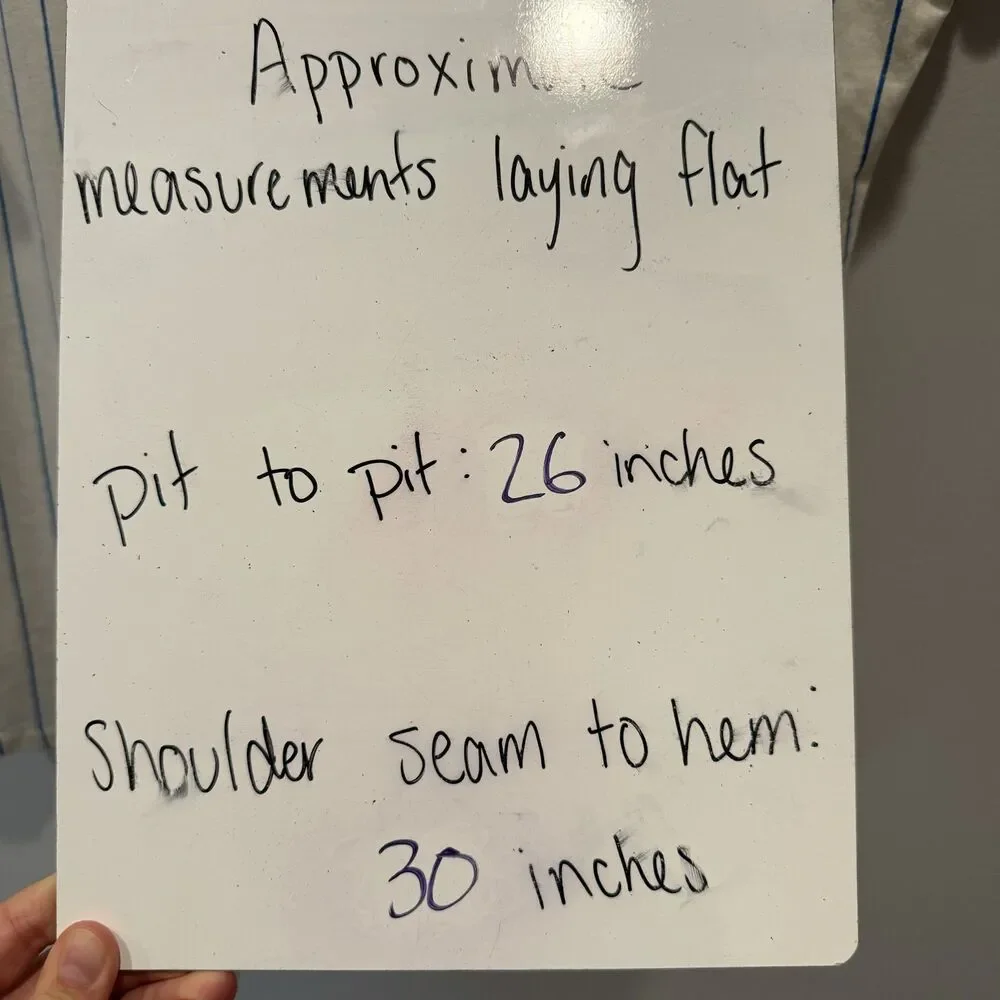 Approximate
measurements laying flat
pit to pit: 26 inches
Shoulder seam to hem:
30 inches